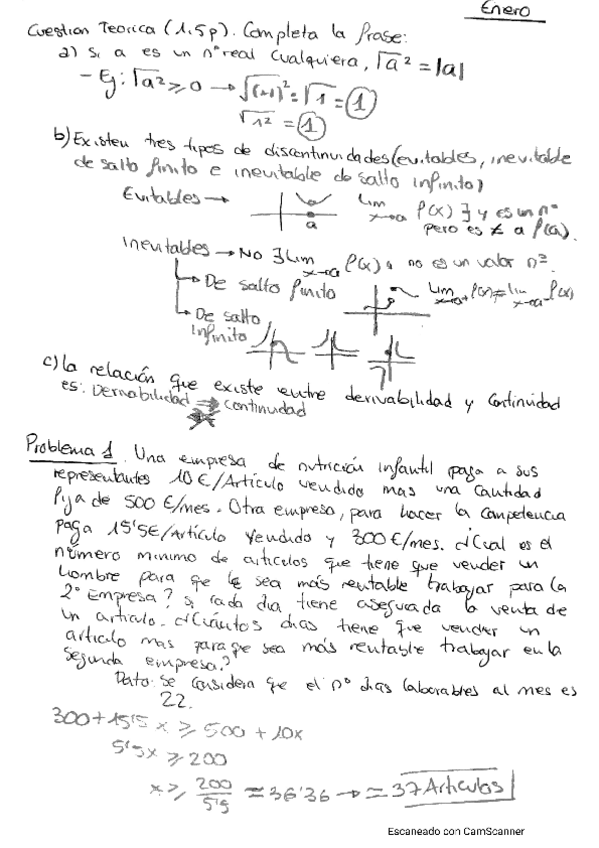 Enero
Cuestion Teorica (1,5p). Completa la frase:
a) Si a es un nº real cualquiera, √a² = |a|
- Ej: √a² ≥ 0 → √(-1)² = √1 = 1
√1² = 1
b) Existen tres tipos de discontinuidades (evitables, inevitable
de salto finito e inevitable de salto infinito)
Evitables → lim x→a f(x) ∃ y es un nº
a pero es ≠ a f(a).
Inevitables → No ∃ lim x→a f(x) o no es un valor nº.
→ De salto finito lim x→a⁺ f(x) ≠ lim x→a⁻ f(x)
→ De salto
infinito
c) la relación que existe entre derivabilidad y continuidad
es: Derivabilidad ⇒ continuidad
Problema 1 Una empresa de nutrición infantil paga a sus
representantes 10 €/Artículo vendido mas una cantidad
fija de 500 €/mes. Otra empresa, para hacer la competencia
paga 15'5€/Artículo vendido y 300 €/mes. ¿Cual es el
número minimo de articulos que tiene que vender un
hombre para que le sea más rentable trabajar para la
2º Empresa? si cada dia tiene asegurada la venta de
un articulo. ¿Cuántos dias tiene que vender un
articulo mas para que sea más rentable trabajar en la
segunda empresa?
Dato: Se considera que el nº dias laborables al mes es
22.
300 + 15'5 x ≥ 500 + 10x
5'5x ≥ 200
x ≥ 200/5'5 = 36'36 → = 37 Artículos
Escaneado con CamScanner